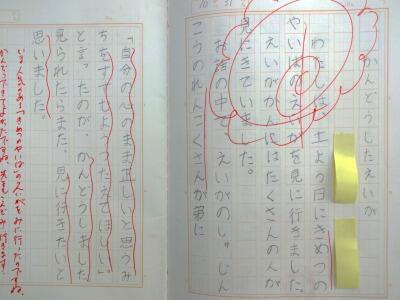 10 31
かんどうしたえいが
わたしは、土よう日にきめつの
やいばのえいがを見に行きました。
えいがかんにはたくさんの人が
見にきていました。
お話の中で、えいがのし。じん
こうのれんごくさんが弟に
「自分の心のまま正しいと思うみ
ちをすすむようつたえてほしい。」
と言ったのが、かんどうしました。
見られたらまた、見に行きたいと
思いました。